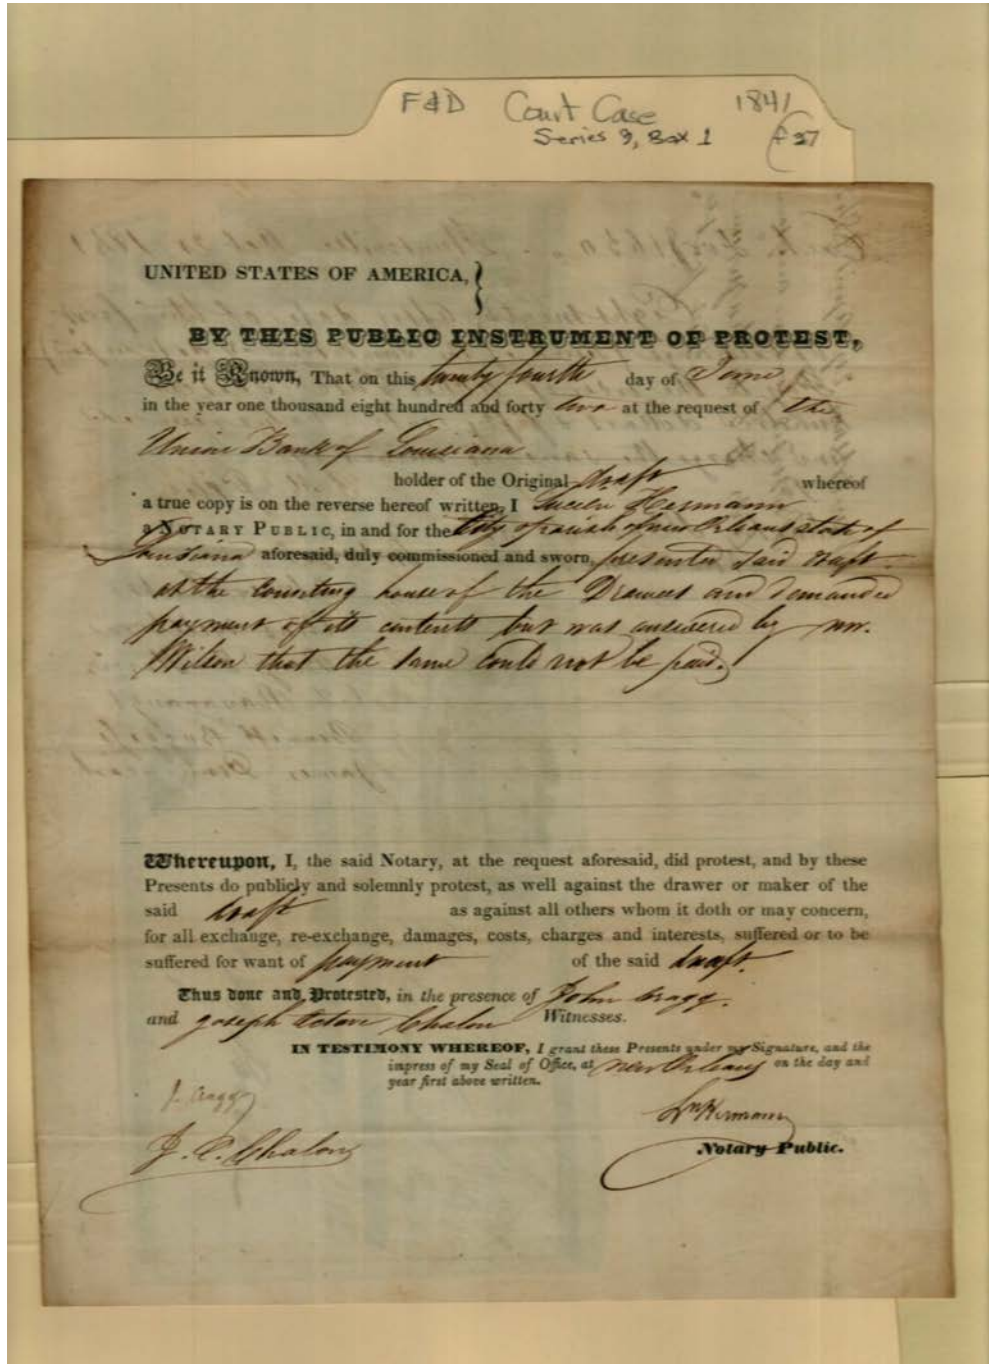 F&D Court Case 1841
Series 9, Box 1 F27
UNITED STATES OF AMERICA, }
BY THIS PUBLIC INSTRUMENT OF PROTEST,
Be it Known, That on this twenty fourth day of June
in the year one thousand eight hundred and forty two at the request of the
Union Bank of Louisiana
holder of the Original draft whereof
a true copy is on the reverse hereof written, I Hermann
a NOTARY PUBLIC, in and for the City & parish of new Orleans state of
Louisiana aforesaid, duly commissioned and sworn, presented said draft
at the counting house of the Drawees and demanded
payment of its contents but was answered by mr.
Wilson that the same could not be paid.
Whereupon, I, the said Notary, at the request aforesaid, did protest, and by these
Presents do publicly and solemnly protest, as well against the drawer or maker of the
said draft as against all others whom it doth or may concern,
for all exchange, re-exchange, damages, costs, charges and interests, suffered or to be
suffered for want of payment of the said draft.
Thus done and Protested, in the presence of John
and Joseph Octave Chalon Witnesses.
IN TESTIMONY WHEREOF, I grant these Presents under my Signature, and the
impress of my Seal of Office, at new Orleans on the day and
year first above written.
J. O. Chalon
Hermann
Notary Public.